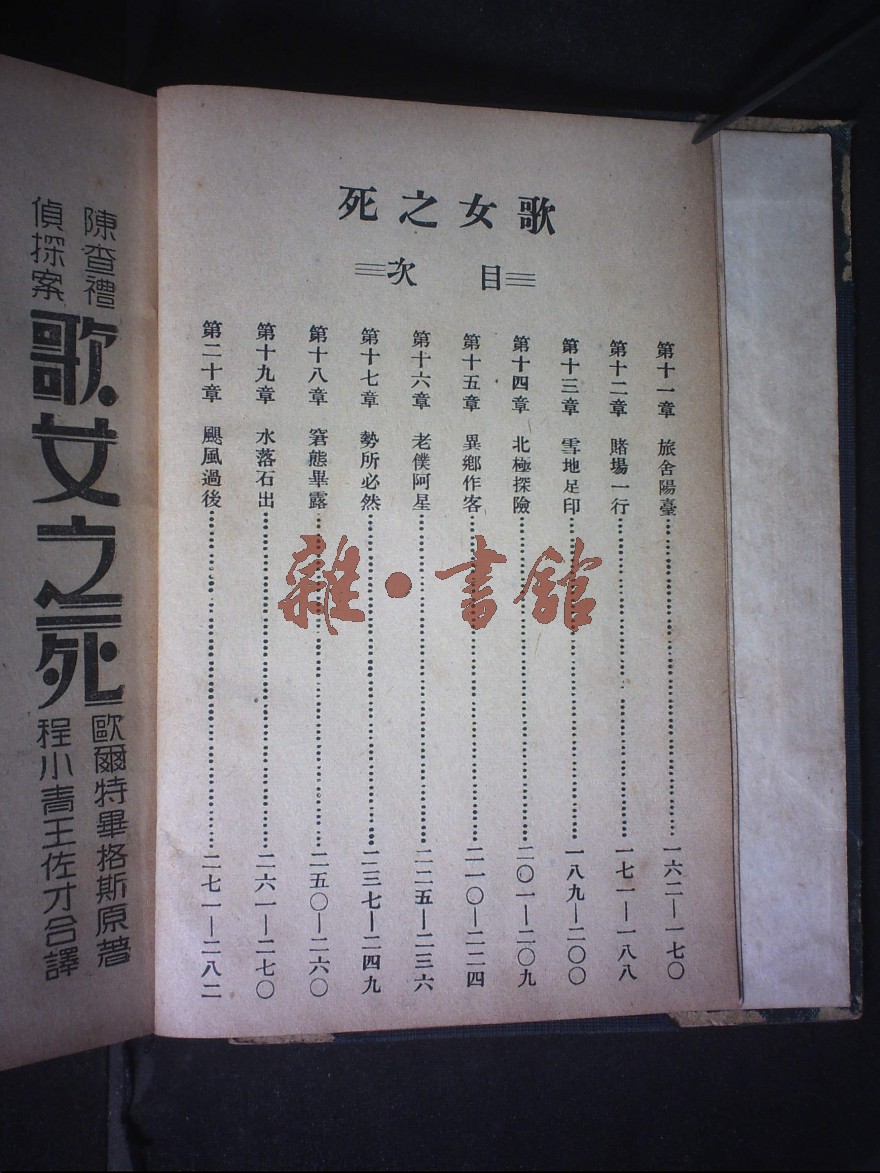 歌女之死
目次
第十一章 旅舍陽臺……一六二—一七〇
第十二章 賭場一行……一七一—一八八
第十三章 雪地足印……一八九—二〇〇
第十四章 北極探險……二〇一—二〇九
第十五章 異鄉作客……二一〇—二二四
第十六章 老僕阿星……二二五—二三六
第十七章 勢所必然……二三七—二四九
第十八章 窘態畢露……二五〇—二六〇
第十九章 水落石出……二六一—二七〇
第二十章 颶風過後……二七一—二八二
陳查禮
偵探案
歌女之死
歐爾特畢格斯原著
程小青王佐才合譯
雜·書館